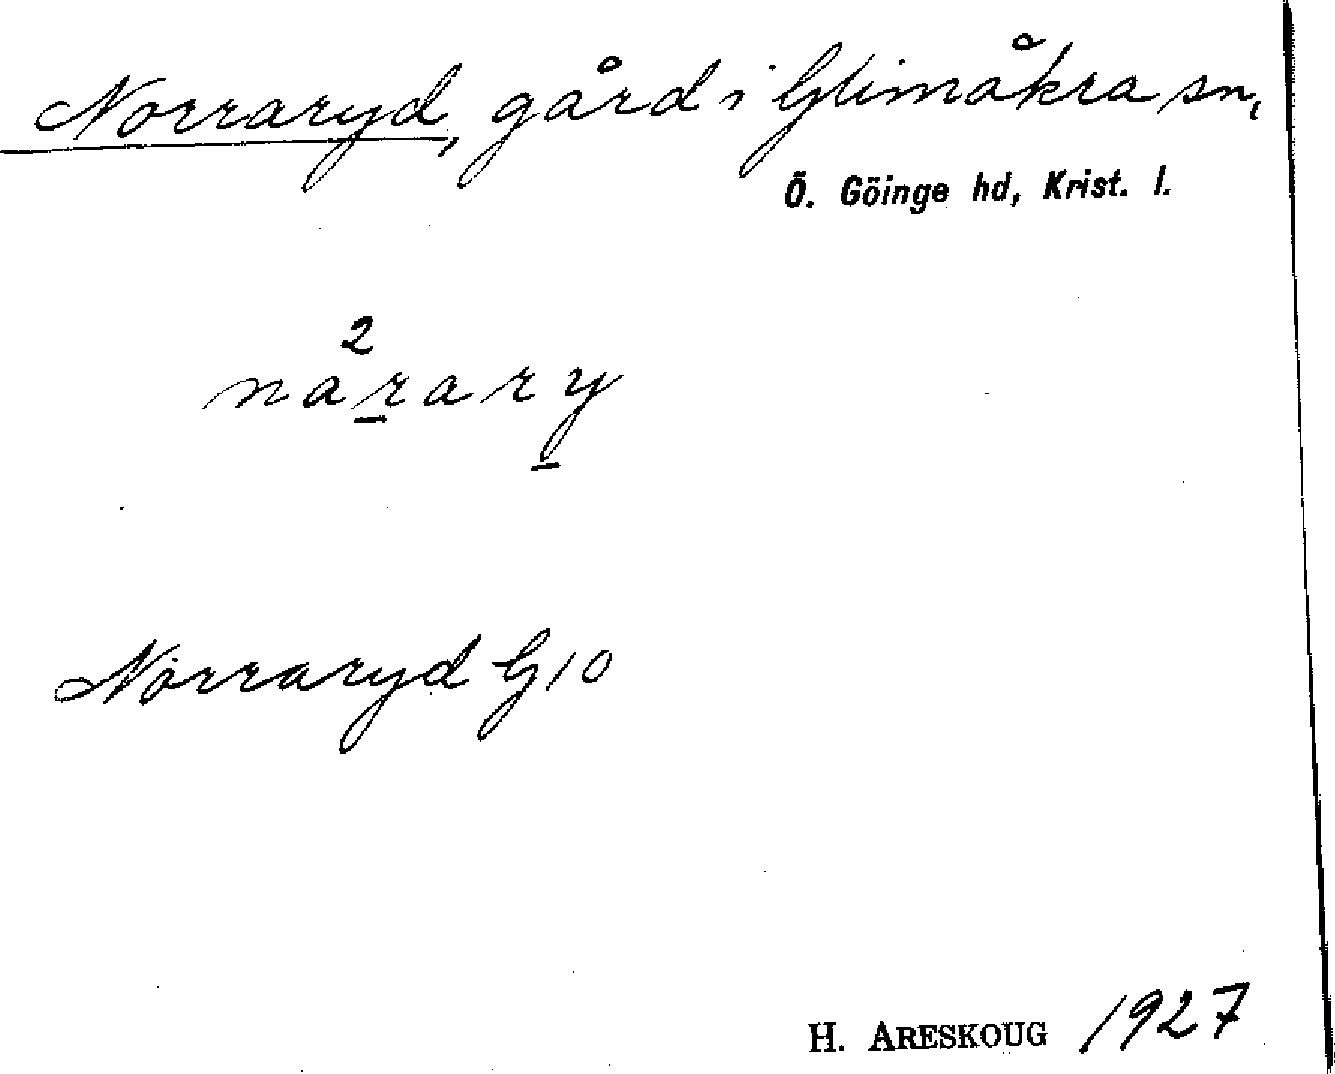 Norraryd, gård i Glimåkra sn,
Ö. Göinge hd, Krist. l.
2
narary
Norraryd G10
H. ARESKOUG 1927